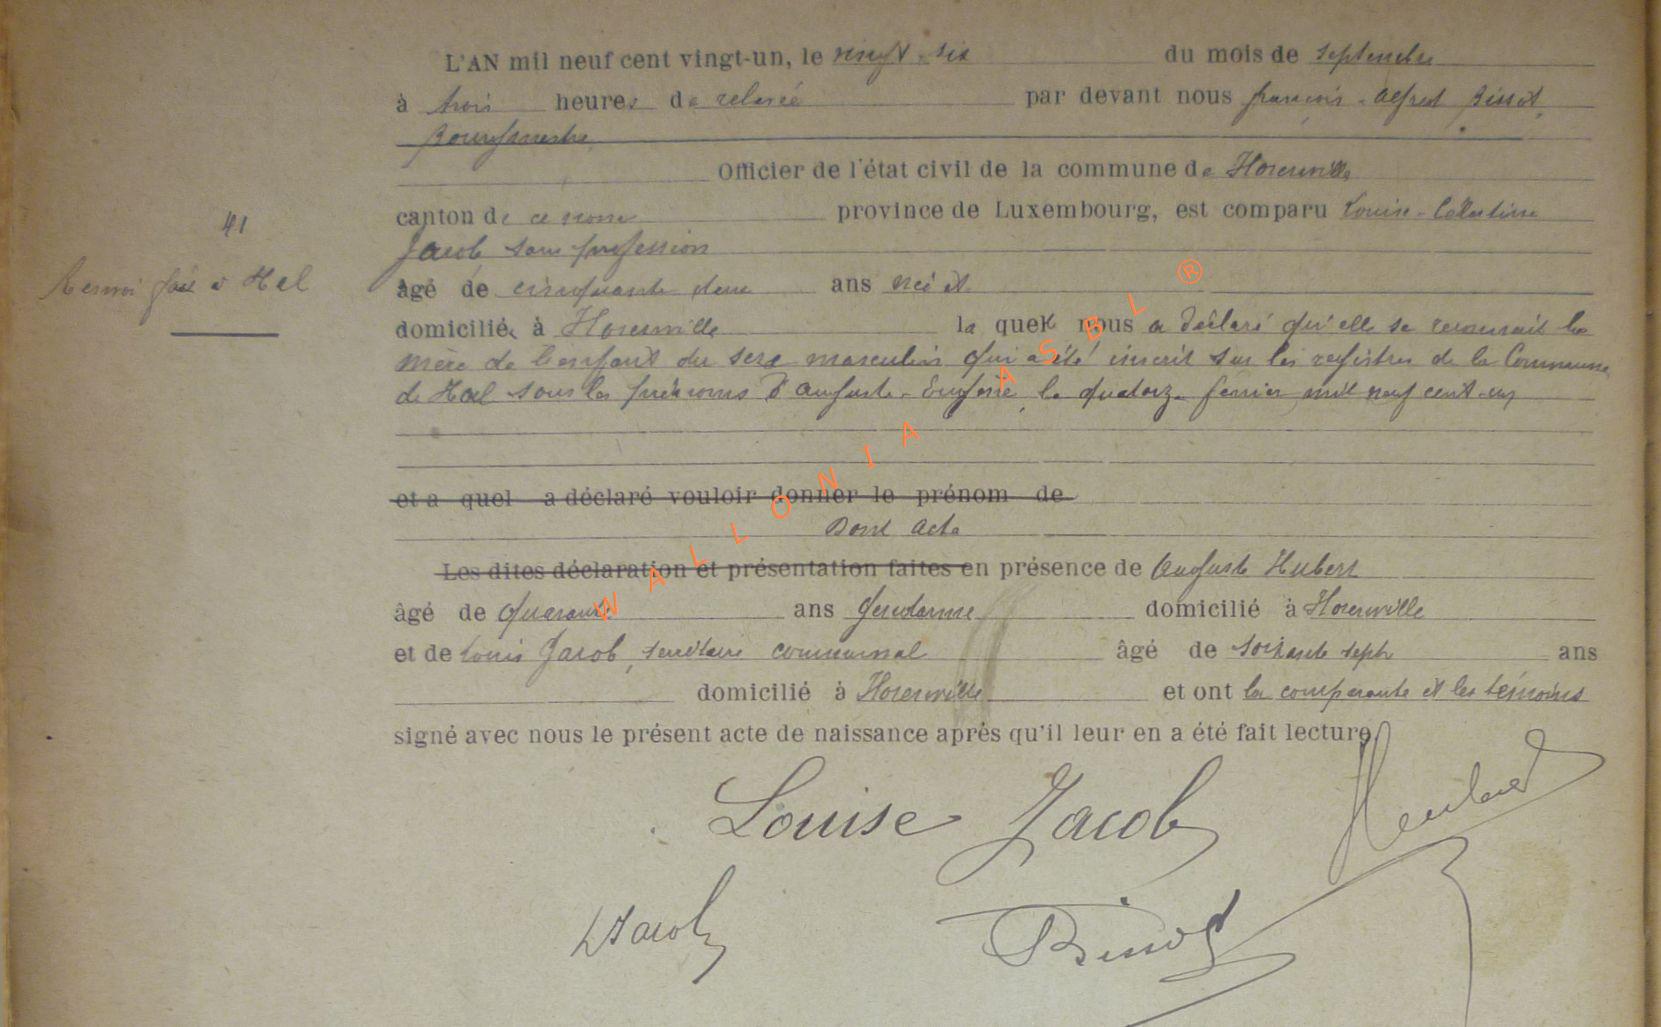 L'AN mil neuf cent vingt-un, le vingt-six du mois de septembre
à trois heures de relevée par devant nous françois-Alfred Bissot,
Bourgmestre
Officier de l'état civil de la commune de Hoseuville
canton de ce nom province de Luxembourg, est comparu Louise-Célestine
Jacob sans profession
âgé de cinquante deux ans né à
domiciliée à Hoseuville la quelle nous a déclaré qu'elle se reconnait la
mère de l'enfant du sexe masculin qui a été inscrit sur les registres de la Commune
de Hal sous les prénoms d'Auguste-Eugène, le quatorze fevrier mil neuf cent-un
et a quel a déclaré vouloir donner le prénom de
Dont Acte
Les dites déclaration et présentation faites en présence de Auguste Hubert
âgé de quarante ans gendarme domicilié à Hoseuville
et de Louis Jacob, secrétaire communal âgé de soixante sept ans
domicilié à Hoseuville et ont la comparante et les témoins
signé avec nous le présent acte de naissance après qu'il leur en a été fait lecture.
41
Renvoi fait à Hal
Louise Jacob Hubert
LJacob Bissot
WALLONIA ASBL ®